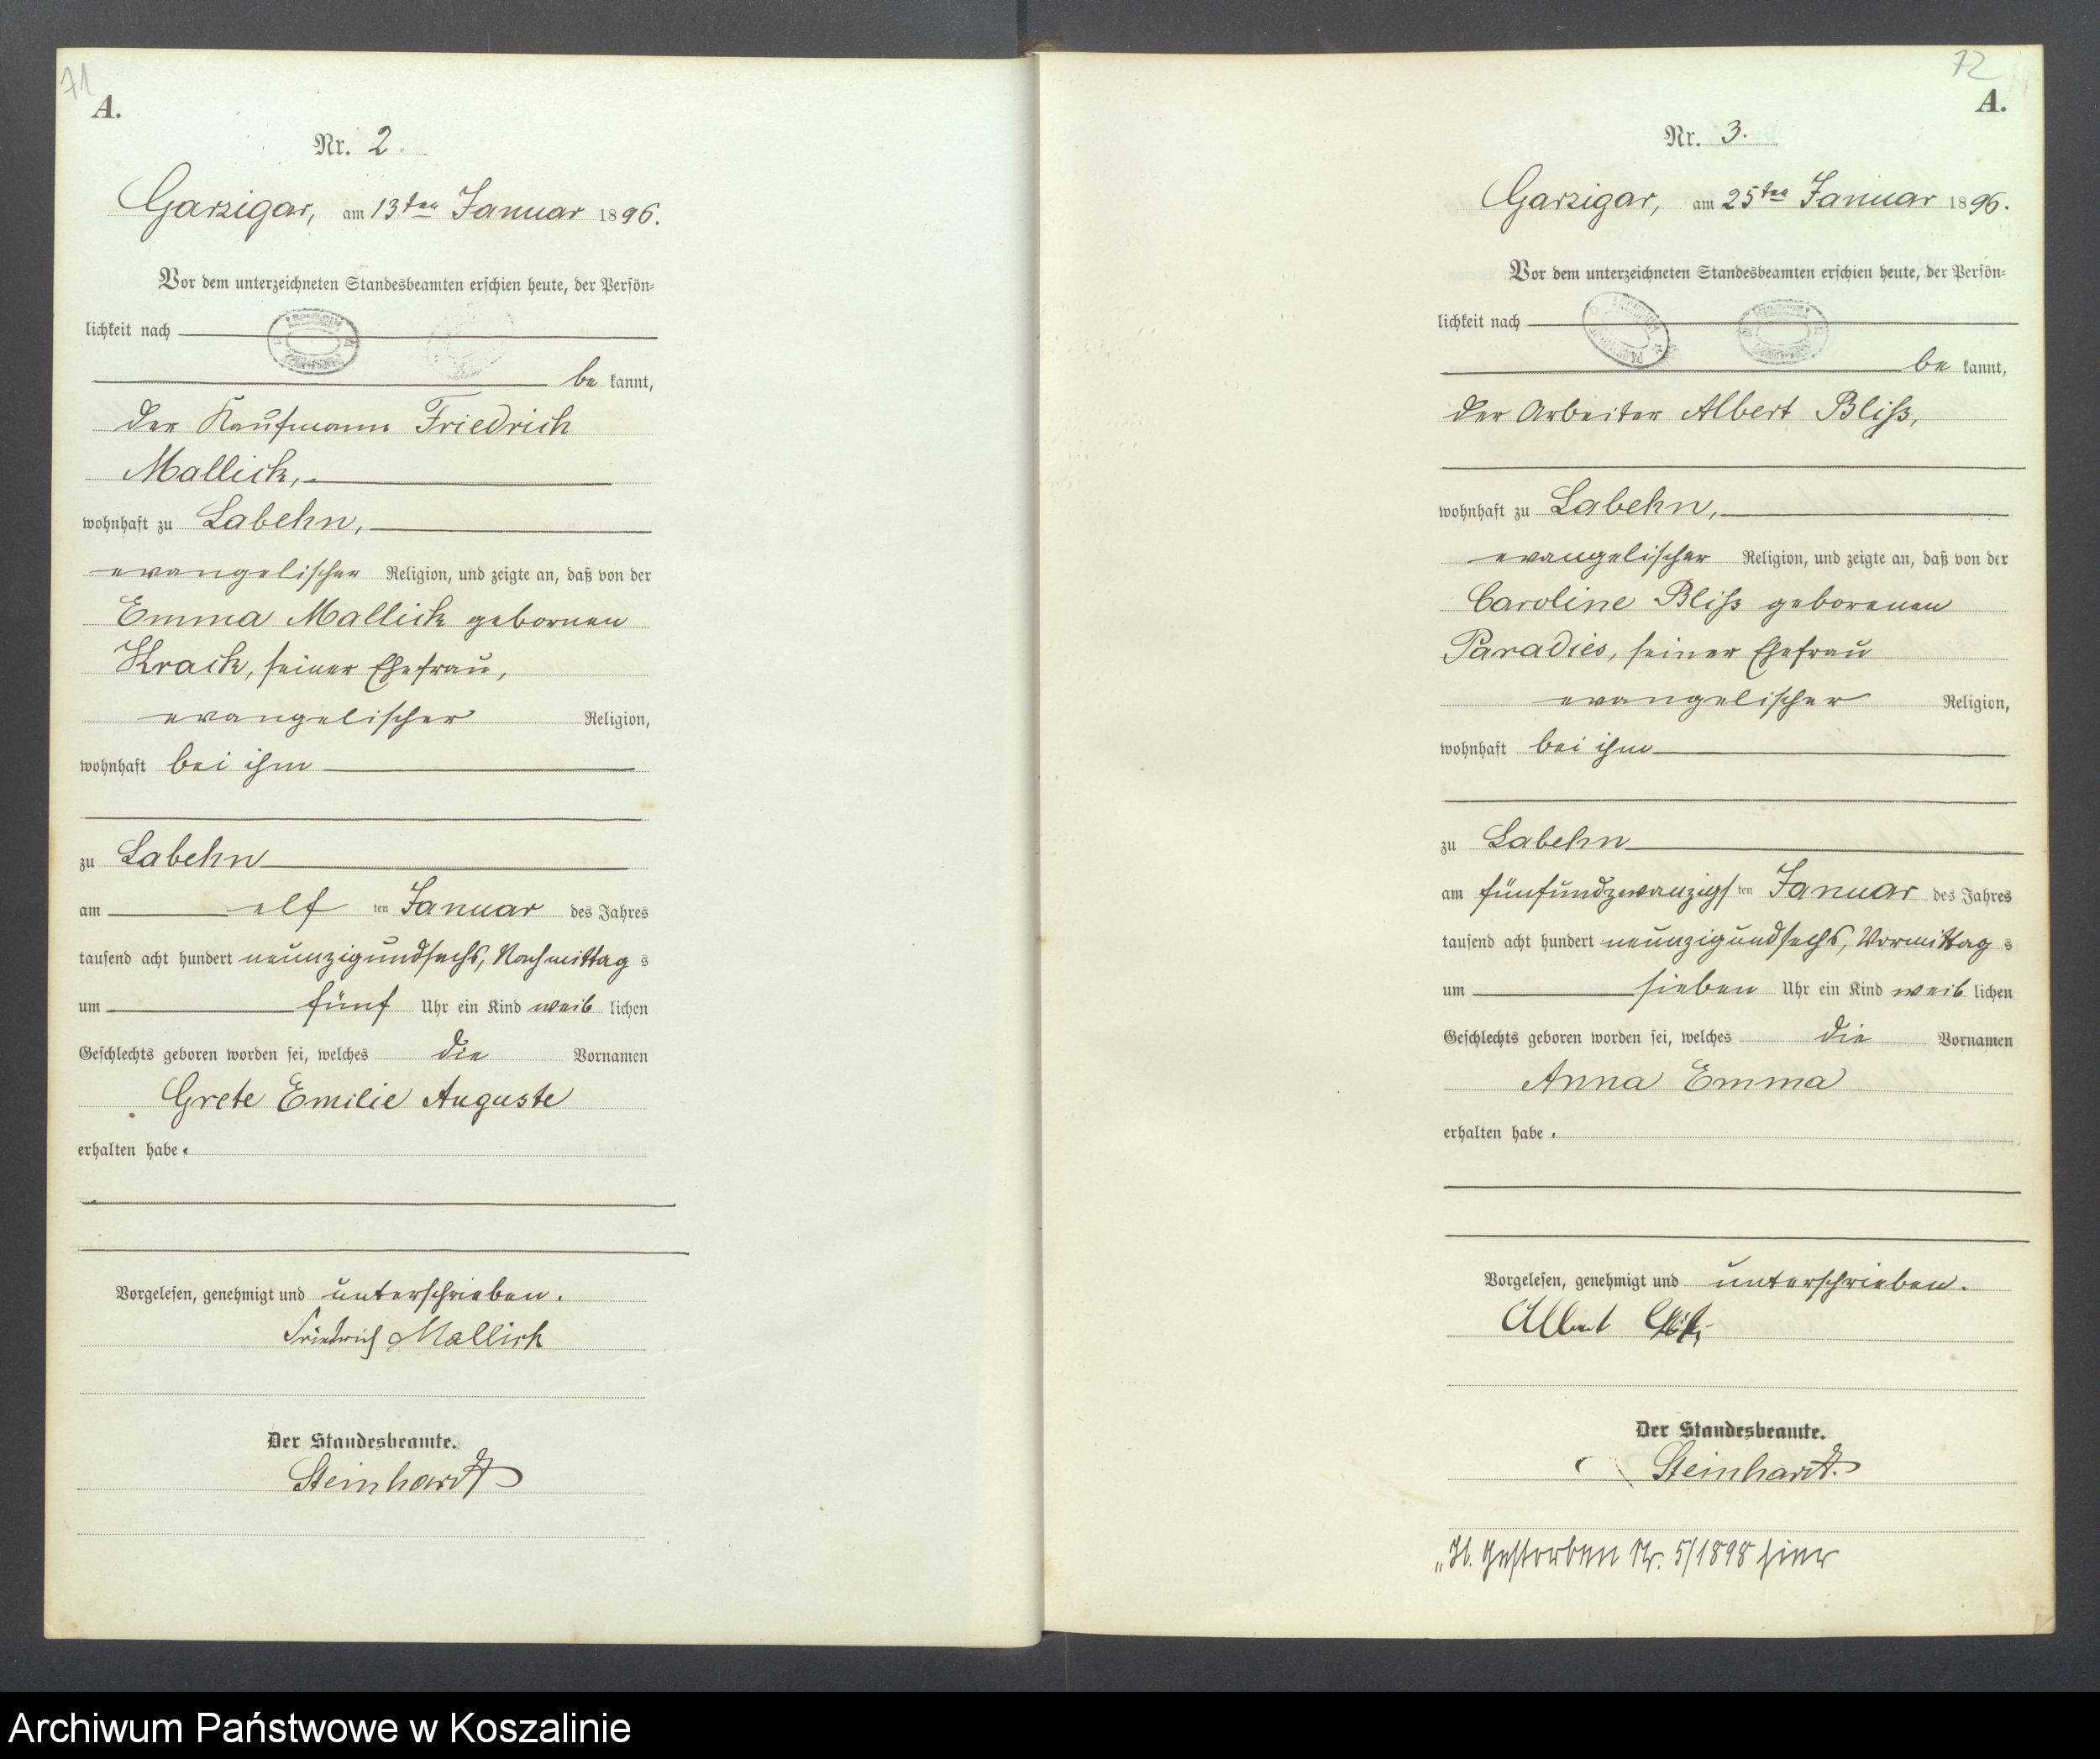 71
A.
Nr. 2.
Garzigar, am 13ten Januar 1896.
Vor dem unterzeichneten Standesbeamten erschien heute, der Persön-
lichkeit nach
be kannt,
der Kaufmann Friedrich
Mallick,
wohnhaft zu Labehn,
evangelischer Religion, und zeigte an, daß von der
Emma Mallick gebornen
Krack, seiner Ehefrau,
evangelischer Religion,
wohnhaft bei ihm
zu Labehn
am elf ten Januar des Jahres
tausend acht hundert neunzigundsechs, Nachmittag s
um fünf Uhr ein Kind weib lichen
Geschlechts geboren worden sei, welches die Vornamen
Grete Emilie Auguste
erhalten habe.
Vorgelesen, genehmigt und unterschrieben.
Friedrich Mallick
Der Standesbeamte.
Steinhardt
72
A.
Nr. 3.
Garzigar, am 25ten Januar 1896.
Vor dem unterzeichneten Standesbeamten erschien heute, der Persön-
lichkeit nach
be kannt,
der Arbeiter Albert Bliß,
wohnhaft zu Labehn,
evangelischer Religion, und zeigte an, daß von der
Caroline Bliß geborenen
Paradies, seiner Ehefrau
evangelischer Religion,
wohnhaft bei ihm
zu Labehn
am fünfundzwanzigs ten Januar des Jahres
tausend acht hundert neunzigundsechs, Vormittag s
um sieben Uhr ein Kind weib lichen
Geschlechts geboren worden sei, welches die Vornamen
Anna Emma
erhalten habe.
Vorgelesen, genehmigt und unterschrieben.
Albert Bliß
Der Standesbeamte.
Steinhardt.
gestorben Nr. 5/1898 hier
Archiwum Państwowe w Koszalinie